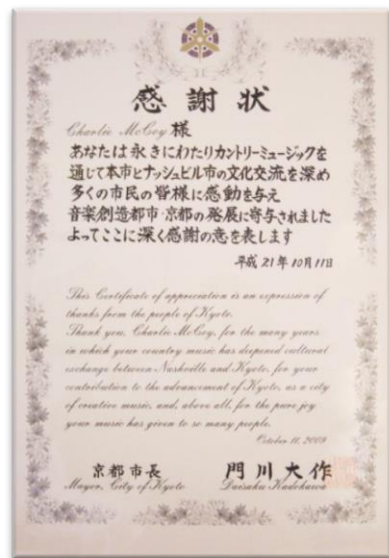 感謝状
Charlie McCoy 様
あなたは永きにわたりカントリーミュージックを
通じて本市とナッシュビル市の文化交流を深め
多くの市民の皆様に感動を与え
音楽創造都市・京都の発展に寄与されました
よってここに深く感謝の意を表します
平成21年10月11日
This Certificate of appreciation is an expression of
thanks from the people of Kyoto.
Thank you, Charlie McCoy, for the many years
in which your country music has deepened cultural
exchange between Nashville and Kyoto, for your
contribution to the advancement of Kyoto, as a city
of creative music, and, above all, for the pure joy
your music has given to so many people.
October 11, 2009
京都市長 門川大作
Mayor, City of Kyoto Daisaku Kadokawa